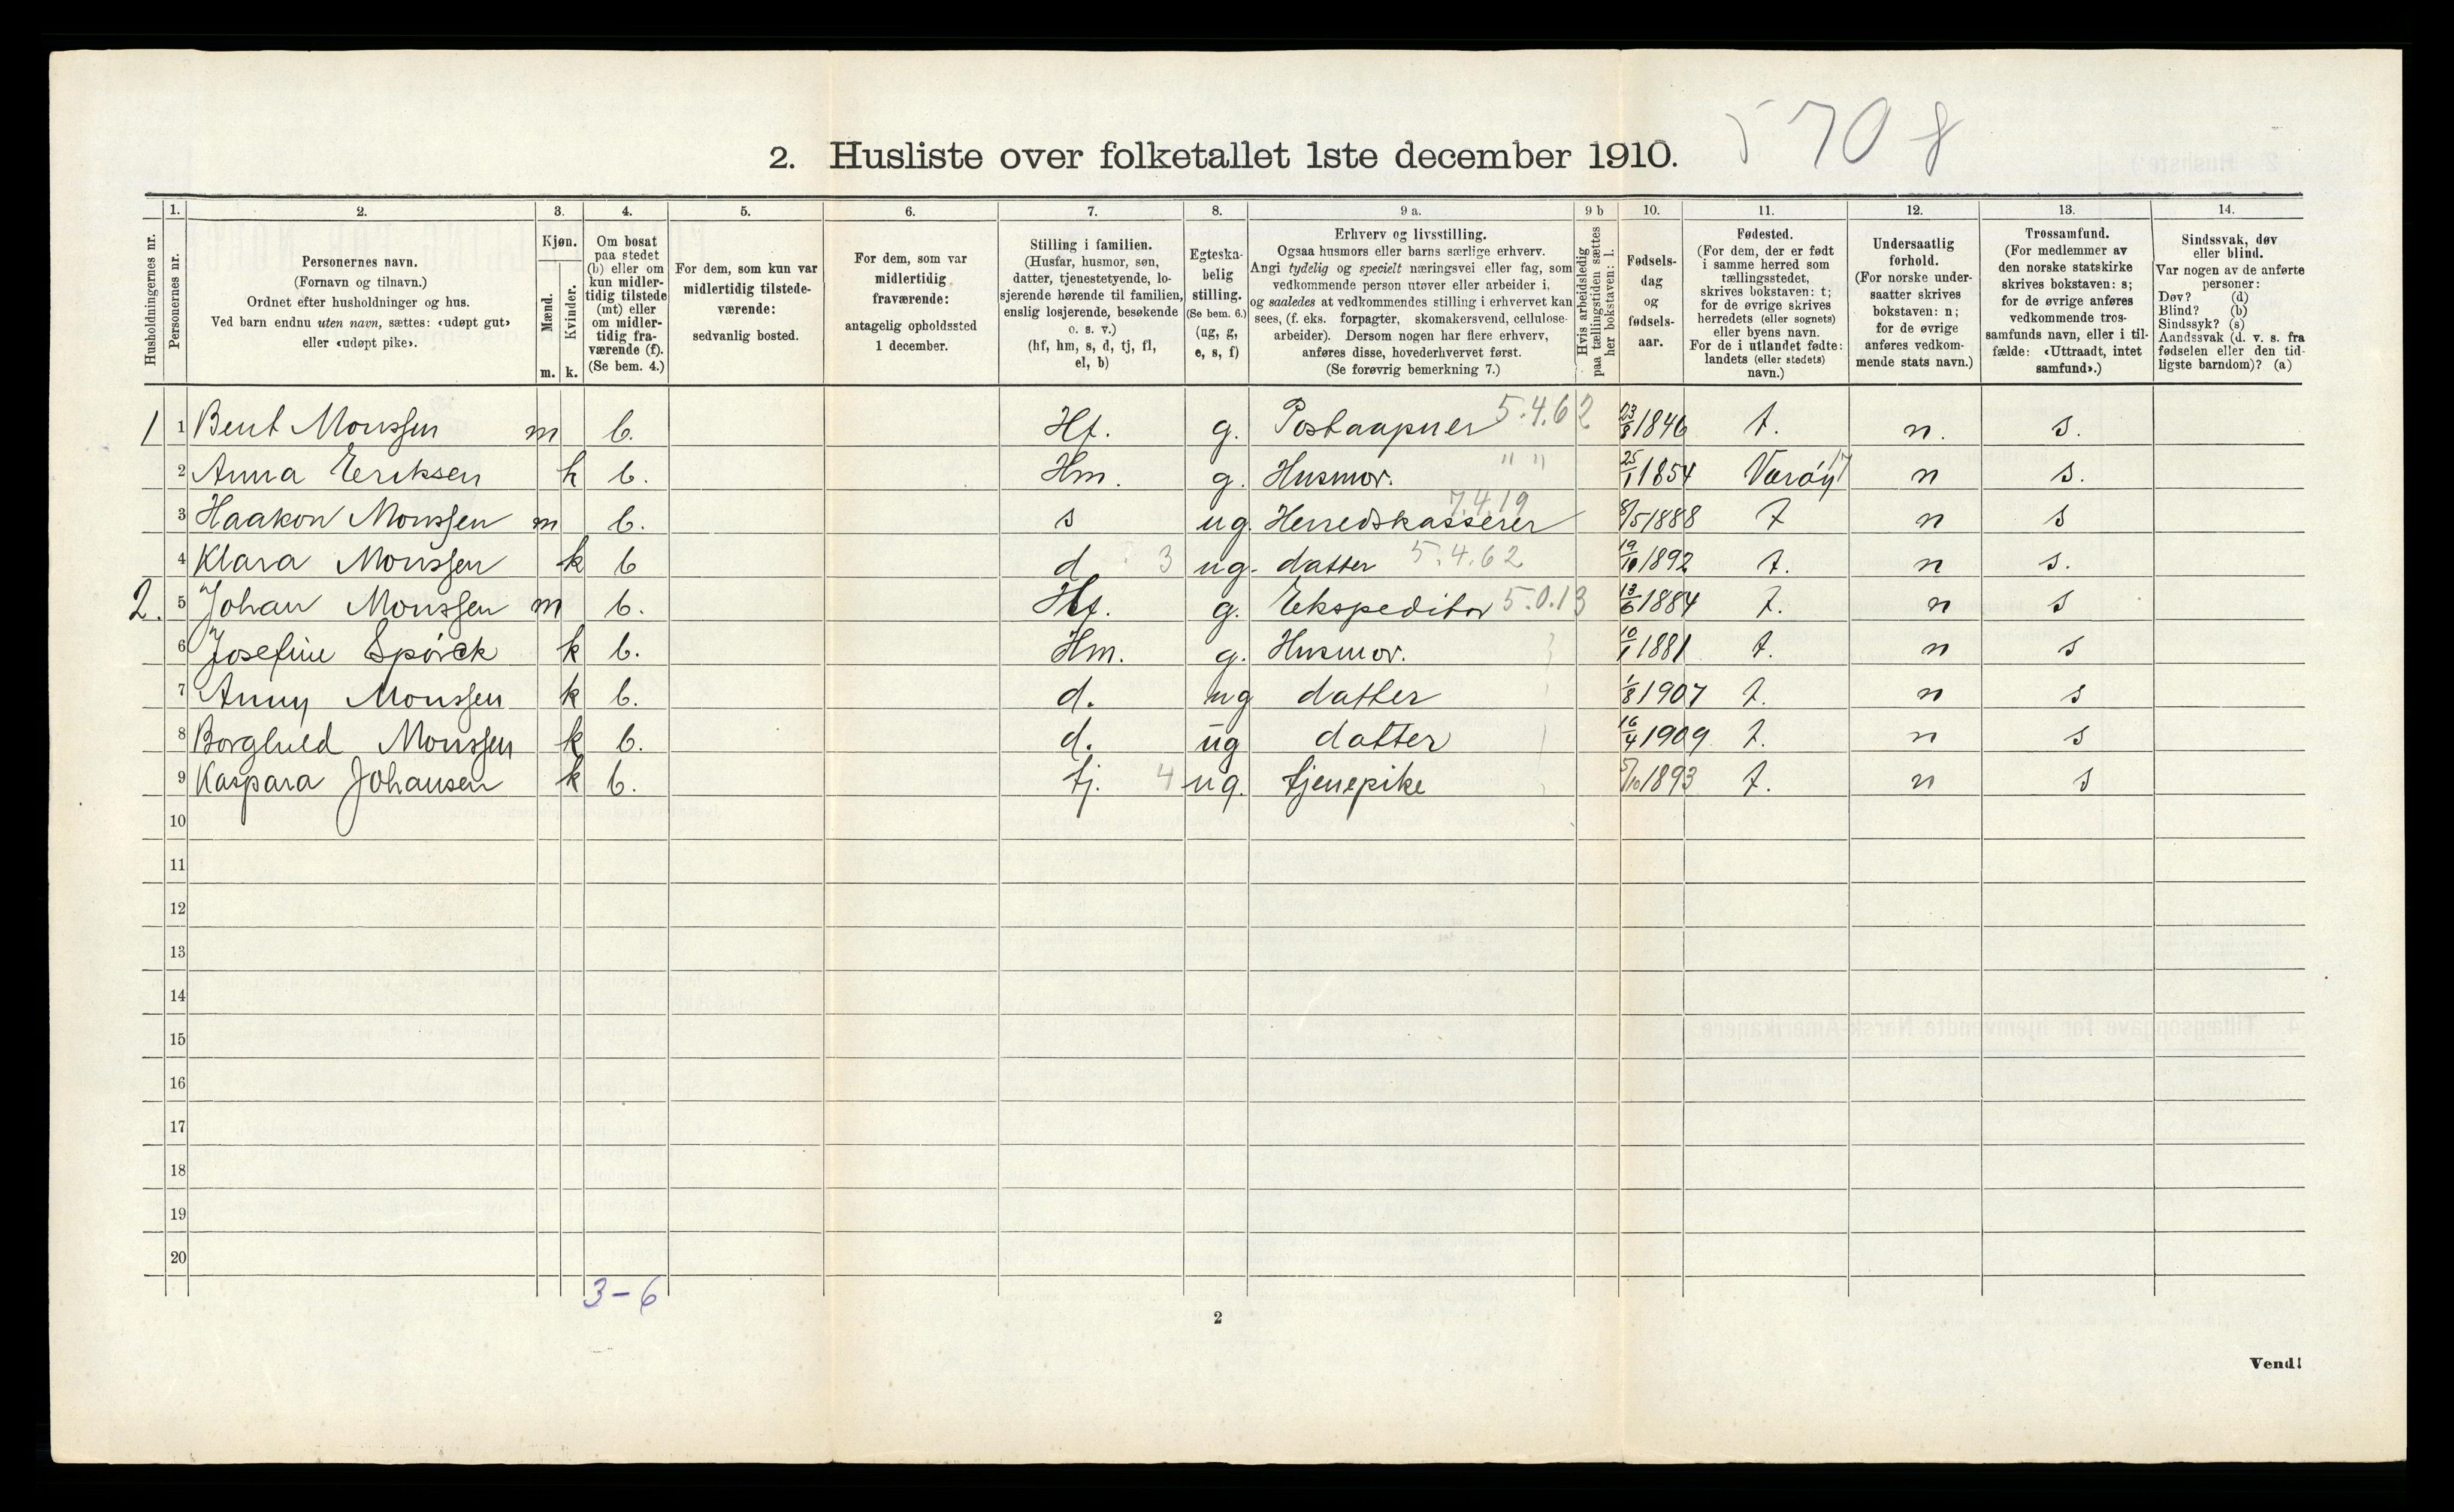 5708
2. Husliste over folketallet 1ste december 1910.
1. 2. 3. 4. 5. 6. 7. 8. 9 a. 9 b 10. 11. 12. 13. 14.
Husholdningernes nr.
Personernes nr.
Personernes navn.
(Fornavn og tilnavn.)
Ordnet efter husholdninger og hus.
Ved barn endnu uten navn, sættes: «udøpt gut»
eller «udøpt pike».
Kjøn.
Mænd.
Kvinder.
m. k.
Om bosat
paa stedet
(b) eller om
kun midler-
tidig tilstede
(mt) eller
om midler-
tidig fra-
værende (f).
(Se bem. 4.)
For dem, som kun var
midlertidig tilstede-
værende:
sedvanlig bosted.
For dem, som var
midlertidig
fraværende:
antagelig opholdssted
1 december.
Stilling i familien.
(Husfar, husmor, søn,
datter, tjenestetyende, lo-
sjerende hørende til familien,
enslig losjerende, besøkende
o. s. v.)
(hf, hm, s, d, tj, fl,
el, b)
Egteska-
belig
stilling.
(Se bem. 6.)
(ug, g,
e, s, f)
Erhverv og livsstilling.
Ogsaa husmors eller barns særlige erhverv.
Angi tydelig og specielt næringsvei eller fag, som
vedkommende person utøver eller arbeider i,
og saaledes at vedkommendes stilling i erhvervet kan
sees, (f. eks. forpagter, skomakersvend, cellulose-
arbeider). Dersom nogen har flere erhverv,
anføres disse, hovederhvervet først.
(Se forøvrig bemerkning 7.)
Hvis arbeidsledig
paa tællingstiden sættes
her bokstaven: l.
Fødsels-
dag
og
fødsels-
aar.
Fødested.
(For dem, der er født
i samme herred som
tællingsstedet,
skrives bokstaven: t;
for de øvrige skrives
herredets (eller sognets)
eller byens navn.
For de i utlandet fødte:
landets (eller stedets)
navn.)
Undersaatlig
forhold.
(For norske under-
saatter skrives
bokstaven: n;
for de øvrige
anføres vedkom-
mende stats navn.)
Trossamfund.
(For medlemmer av
den norske statskirke
skrives bokstaven: s;
for de øvrige anføres
vedkommende tros-
samfunds navn, eller i til-
fælde: «Uttraadt, intet
samfund».)
Sindssvak, døv
eller blind.
Var nogen av de anførte
personer:
Døv? (d)
Blind? (b)
Sindssyk? (s)
Aandssvak (d. v. s. fra
fødselen eller den tid-
ligste barndom)? (a)
1 1 Bent Monssen m b. Hf. g. Postaapner 5.4.62 23/8 1846 t. n. s.
2 Anna Eriksen k b. Hm. g. Husmor. " " 25/1 1854 Værøy 17 n s.
3 Haakon Monssen m b. s ug. Herredskasserer 7.4.19 8/5 1888 t n s
4 Klara Monssen k b d 3 ug. datter 5.4.62 19/10 1892 t. n s.
2. 5 Johan Monssen m b. Hf. g. Ekspeditør 5.0.13 13/6 1884 t. n s
6 Josefine Spörck k b. Hm. g. Husmor. 10/1 1881 t. n s
7 Anny Monssen k b. d. ug datter 1/8 1907 t. n s
8 Borghild Monssen k b. d. ug datter 16/4 1909 t. n s
9 Kaspara Johansen k b. tj. 4 ug. tjenepike 5/10 1893 t. n s
10
11
12
13
14
15
16
17
18
19
20
3-6
2
Vend!